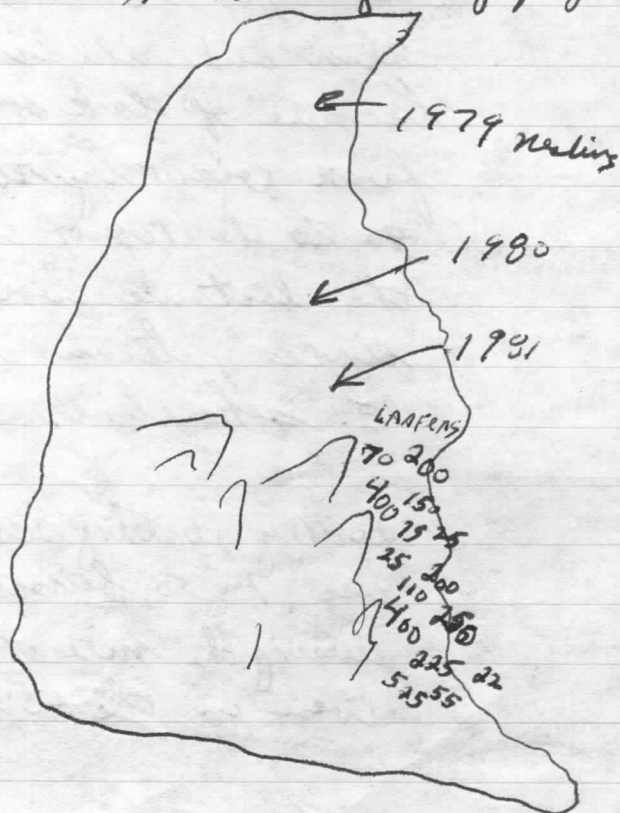 1979 nesting
1980
1981
70 200
400 150
75 25
25 200
110
400
225 22
525 55